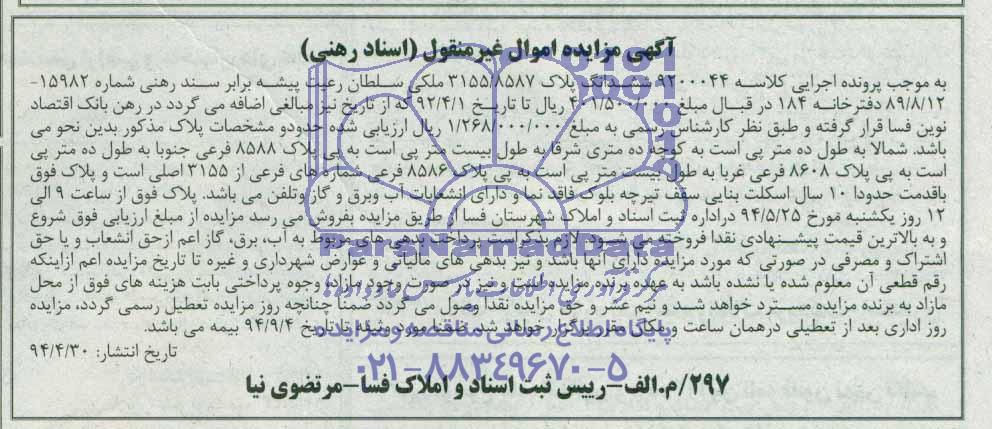 آگهی مزایده اموال غیرمنقول (اسناد رهنی)
به موجب پرونده اجرایی کلاسه ۹۲۰۰۰۴۴ ششدانگ پلاک ۳۱۵۵/۸۵۸۷ ملکی سلطان رعیت پیشه برابر سند رهنی شماره ۱۵۹۸۲-
۸۹/۸/۱۲ دفترخانه ۱۸۴ در قبال مبلغ ۴۰۱/۵۰۰/۰۰۰ ریال تا تاریخ ۹۲/۴/۱ که از تاریخ نیز مبالغی اضافه می گردد در رهن بانک اقتصاد
نوین فسا قرار گرفته و طبق نظر کارشناس رسمی به مبلغ ۱/۲۶۸/۰۰۰/۰۰۰ ریال ارزیابی شده حدودو مشخصات پلاک مذکور بدین نحو می
باشد. شمالا به طول ده متر پی است به کوچه ده متری شرقا به طول بیست متر پی است به پی پلاک ۸۵۸۸ فرعی جنوبا به طول ده متر پی
است به پی پلاک ۸۶۰۸ فرعی غربا به طول بیست متر پی است به پی پلاک ۸۵۸۶ فرعی شماره های فرعی از ۳۱۵۵ اصلی است و پلاک فوق
باقدمت حدودا ۱۰ سال اسکلت بنایی سقف تیرچه بلوک فاقد نما و دارای انشعابات آب وبرق و گاز وتلفن می باشد. پلاک فوق از ساعت ۹ الی
۱۲ روز یکشنبه مورخ ۹۴/۵/۲۵ دراداره ثبت اسناد و املاک شهرستان فسا از طریق مزایده بفروش می رسد مزایده از مبلغ ارزیابی فوق شروع
و به بالاترین قیمت پیشنهادی نقدا فروخته می شود. لازم بذکراست پرداخت بدهی های مربوط به آب، برق، گاز اعم ازحق انشعاب و یا حق
اشتراک و مصرفی در صورتی که مورد مزایده دارای آنها باشد و نیز بدهی های مالیاتی و عوارض شهرداری و غیره تا تاریخ مزایده اعم ازاینکه
رقم قطعی آن معلوم شده یا نشده باشد به عهده برنده مزایده است و نیز در صورت وجود مازاد، وجوه پرداختی بابت هزینه های فوق از محل
مازاد به برنده مزایده مسترد خواهد شد و نیم عشر و حق مزایده نقدا وصول می گردد. ضمنا چنانچه روز مزایده تعطیل رسمی گردد، مزایده
روز اداری بعد از تعطیلی درهمان ساعت و مکان مقرر برگزار خواهد شد. ضمنا مورد وثیقه تا تاریخ ۹۴/۹/۴ بیمه می باشد.
تاریخ انتشار: ۹۴/۴/۳۰
۲۹۷/م.الف-رییس ثبت اسناد و املاک فسا-مرتضوی نیا
ParsNamadData
پایگاه اطلاع رسانی مناقصه و مزایده
۰۲۱-۸۸۳۴۹۶۷۰-۵